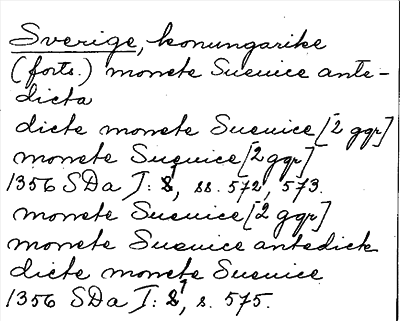 Sverige, konungarike
(forts.) monete Sueuice ante-
dicta
dicte monete Sueuice [2 ggr]
monete Suquice [2 ggr]
1356 SDa I: 8, ss. 572, 573.
monete Sueuice [2 ggr]
monete Sueuice antedicte
dicte monete Sueuice
1356 SDa I: 8, s. 575.